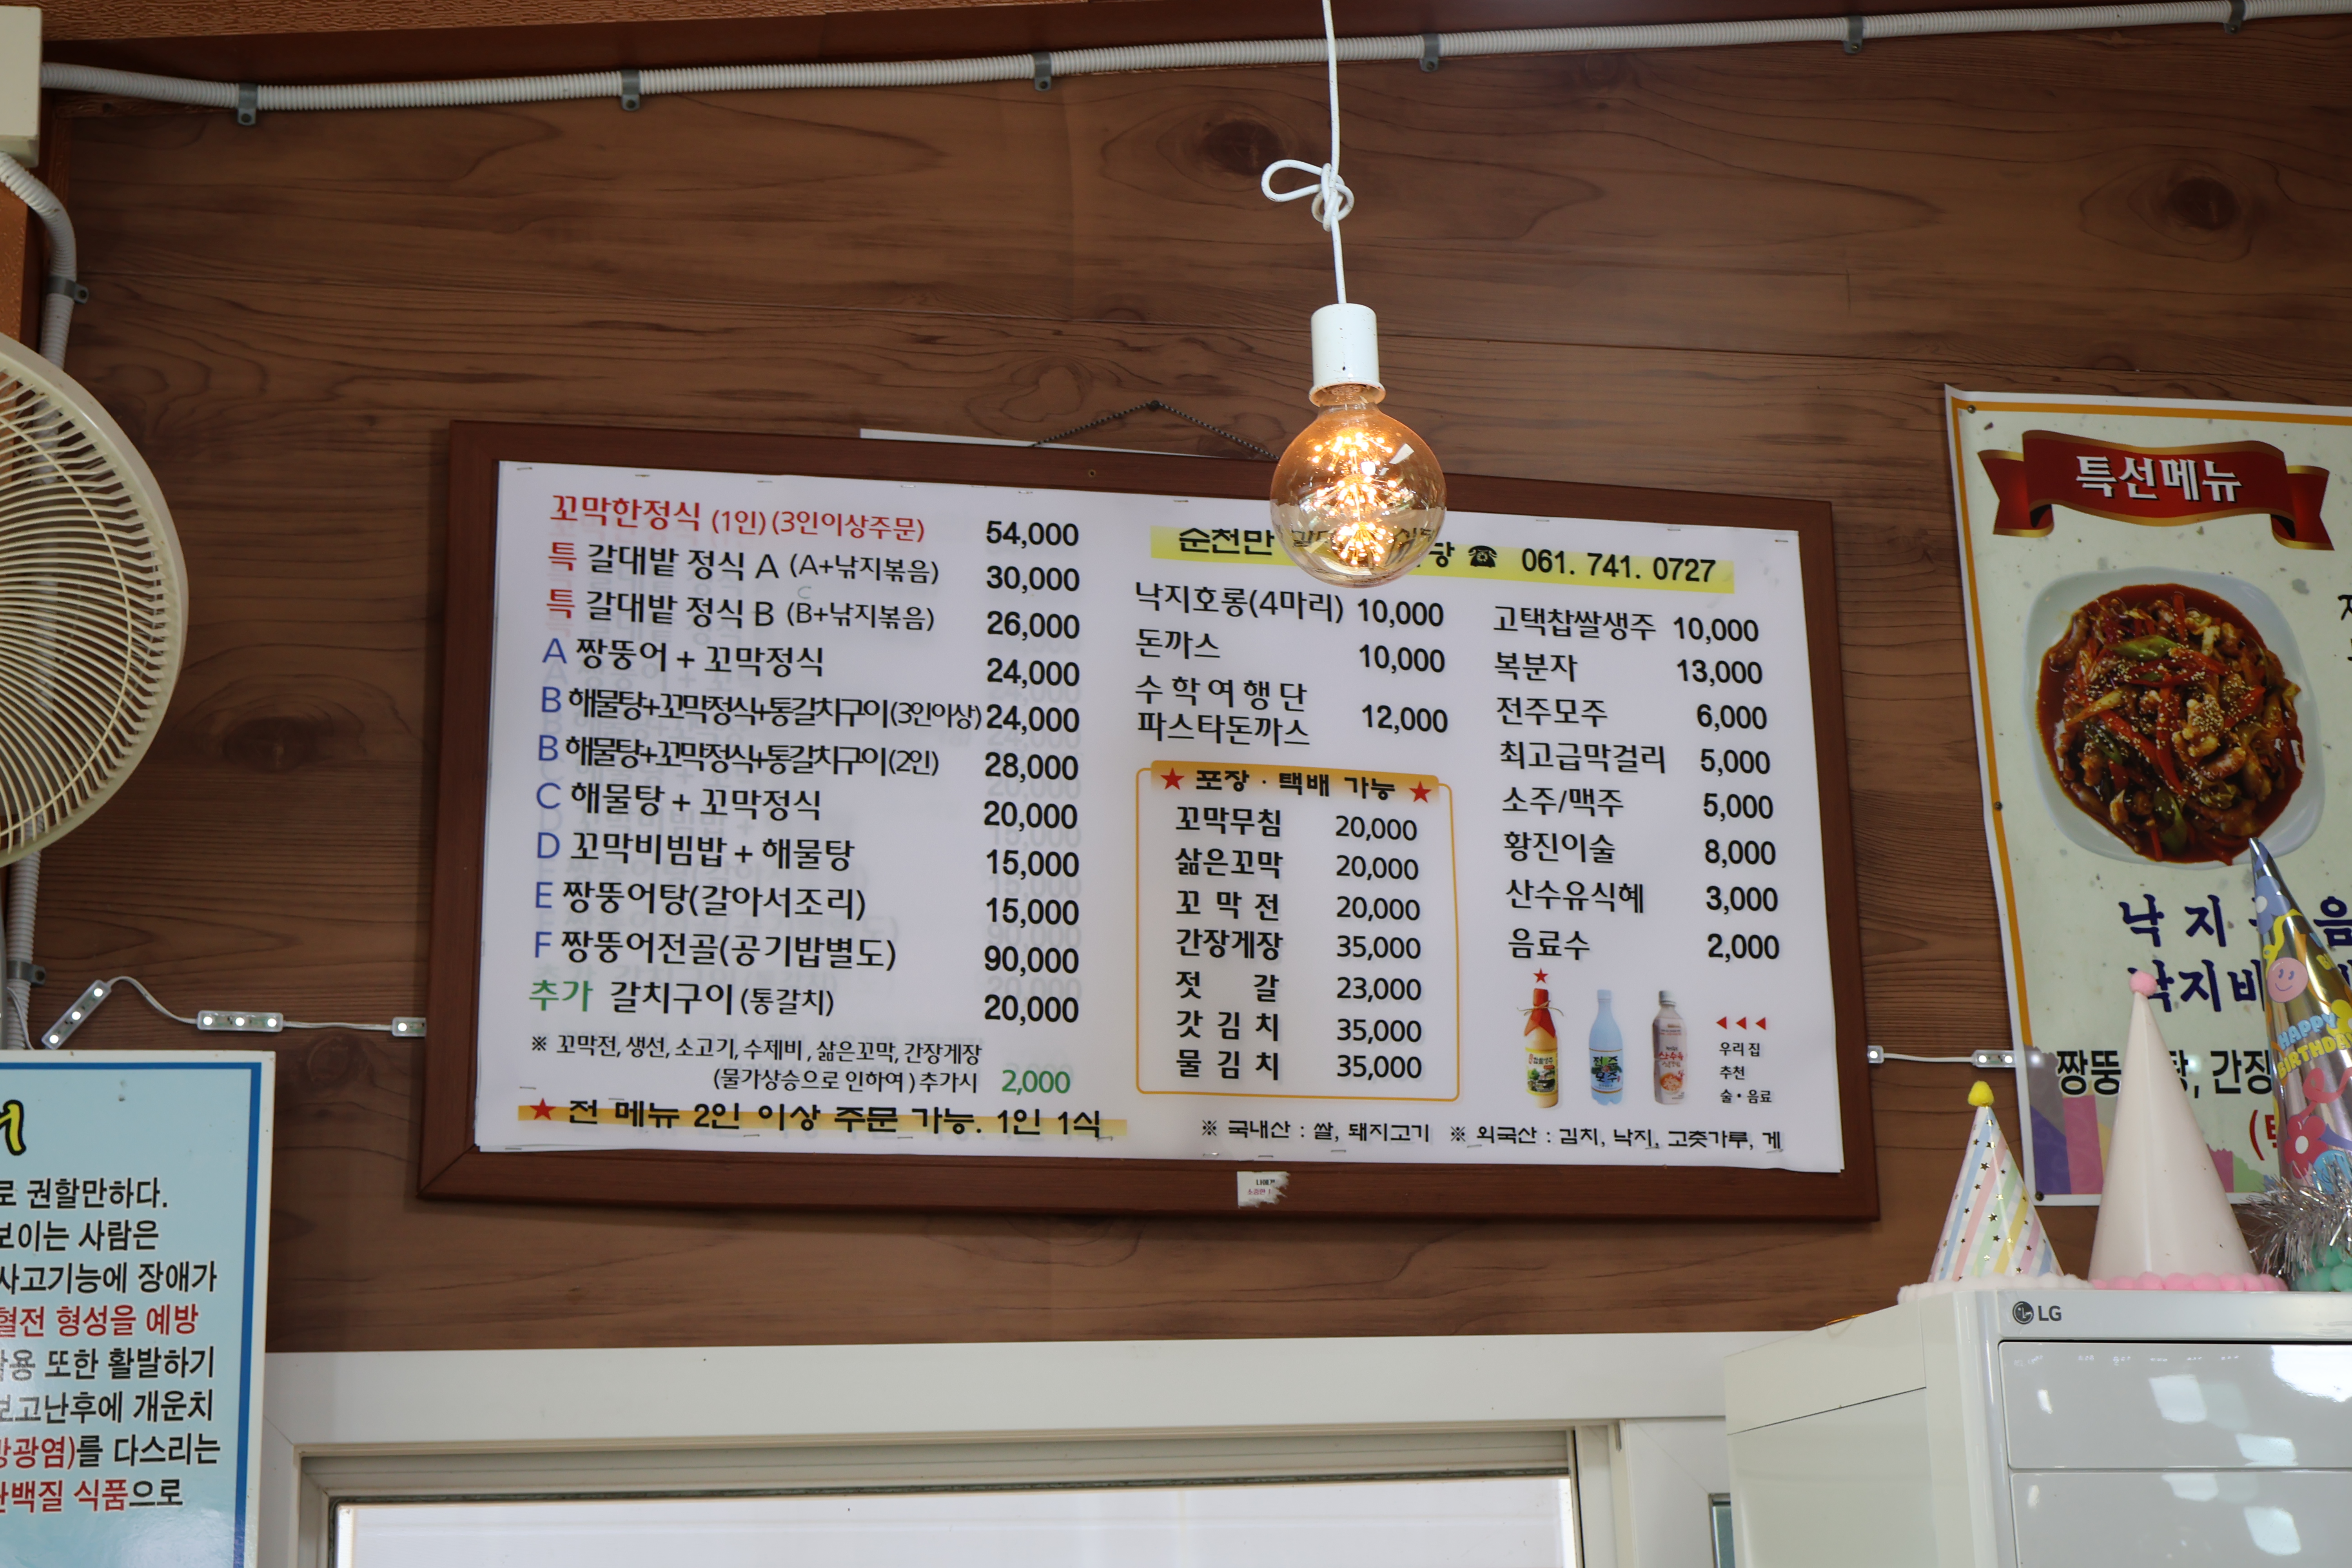 꼬막한정식 (1인) (3인이상주문) 54,000
특 갈대밭 정식 A (A+낚지볶음) 30,000
C
특 갈대밭 정식 B (B+낚지볶음) 26,000
A 짱뚱어 + 꼬막정식 24,000
B 해물탕+꼬막정식+통갈치구이(3인이상) 24,000
B 해물탕+꼬막정식+통갈치구이(2인) 28,000
C 해물탕 + 꼬막정식 20,000
D 꼬막비빔밥 + 해물탕 15,000
E 짱뚱어탕(갈아서조리) 15,000
F 짱뚱어전골(공기밥별도) 90,000
추가 갈치구이 (통갈치) 20,000
※ 꼬막전, 생선, 소고기, 수제비 , 삶은꼬막, 간장게장
(물가상승으로 인하여 ) 추가시 2,000
★ 전 메뉴 2인 이상 주문 가능. 1인 1식
순천만 ☎ 061. 741. 0727
낙지호롱(4마리) 10,000
돈까스 10,000
수 학 여 행 단
파스타돈까스 12,000
★ 포장 · 택배 가능 ★
꼬막무침 20,000
삶은꼬막 20,000
꼬 막 전 20,000
간장게장 35,000
젓 갈 23,000
갓 김 치 35,000
물 김 치 35,000
고택찹쌀생주 10,000
복분자 13,000
전주모주 6,000
최고급막걸리 5,000
소주/맥주 5,000
황진이술 8,000
산수유식혜 3,000
음료수 2,000
◀ ◀ ◀
우리 집
추천
술 • 음료
※ 국내산 : 쌀, 돼지고기 ※ 외국산 : 김치, 낙지, 고춧가루, 게
특선메뉴
낙 지
낙지비
짱뚱 탕, 간장
HAPPY
BIRTHDAY
LG
로 권할만하다.
보이는 사람은
사고기능에 장애가
혈전 형성을 예방
작용 또한 활발하기
보고난후에 개운치
방광염)를 다스리는
단백질 식품으로